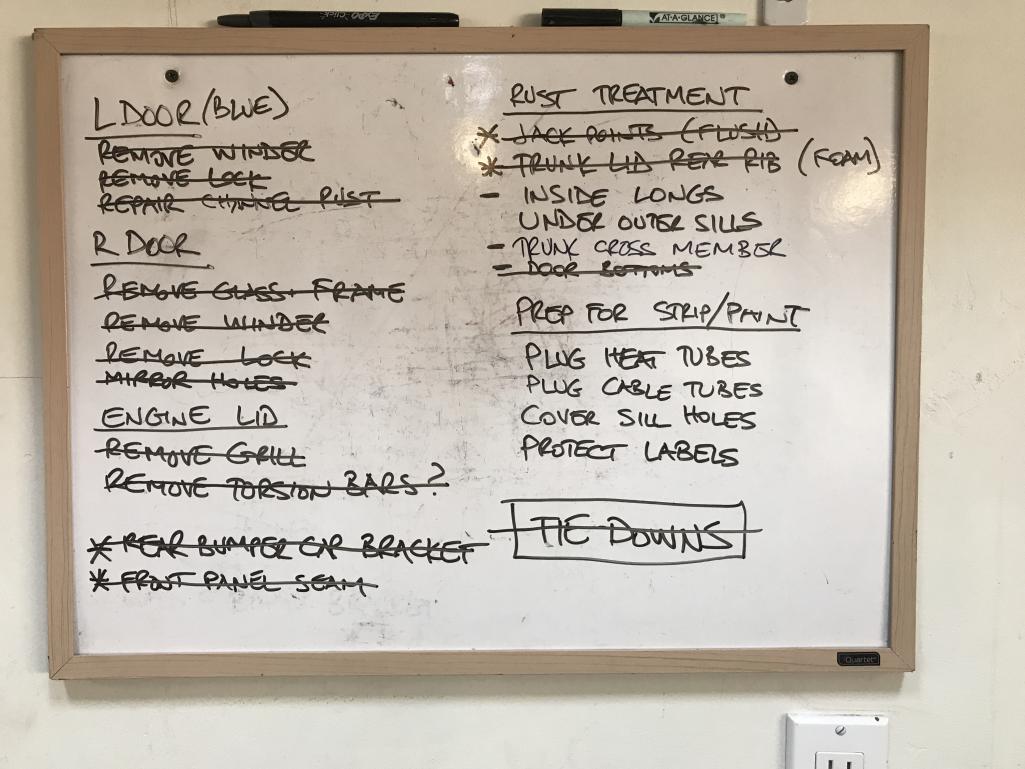 EXPO CLICK
AT-A-GLANCE
L DOOR (BLUE)
REMOVE WINDER
REMOVE LOCK
REPAIR CHANNEL RUST
R DOOR
REMOVE GLASS + FRAME
REMOVE WINDER
REMOVE LOCK
MIRROR HOLES
ENGINE LID
REMOVE GRILL
REMOVE TORSION BARS?
* REAR BUMPER CAP BRACKET
* FRONT PANEL SEAM
RUST TREATMENT
* JACK POINTS (FLUSH)
* TRUNK LID REAR RIB (FOAM)
- INSIDE LONGS
UNDER OUTER SILLS
- TRUNK CROSS MEMBER
- DOOR BOTTOMS
PREP FOR STRIP/PAINT
PLUG HEAT TUBES
PLUG CABLE TUBES
COVER SILL HOLES
PROTECT LABELS
TIE DOWNS
Quartet